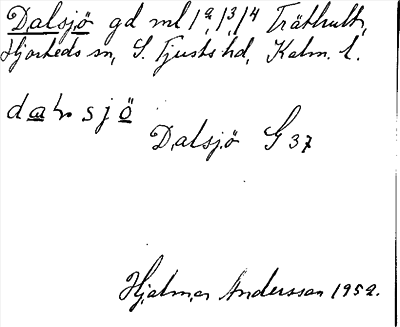 Dalsjö gd ml 1²/, 1³/, 1⁴ Träthult,
Hjorteds sn, S. Tjusts hd, Kalm. l.
dạḷ. sjö
Dalsjö G 37
Hjalmar Andersson 1952.